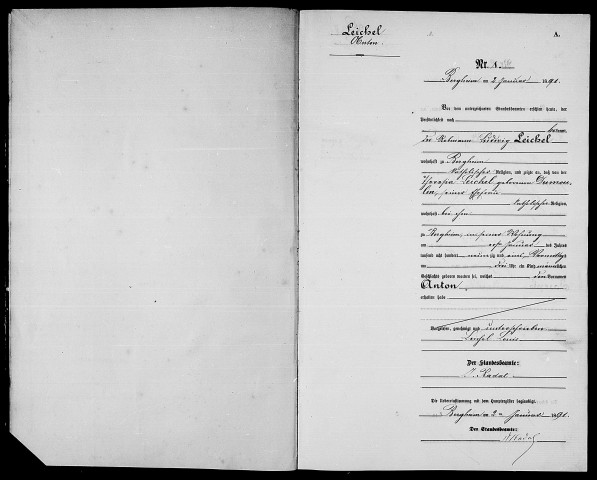 Leichel
Anton.
A.
Nr. 1.
Bergheim am 2 Januar 1891.
Vor dem unterzeichneten Standesbeamten erschien heute, der
Persönlichkeit nach
kannt,
der Ludwig Leichel
wohnhaft zu Bergheim
katholischer Religion, und zeigte an, daß von der
Theresia Leichel geborenen Dumou-
lin, seiner Ehefrau
katholischer Religion,
wohnhaft bei ihm
zu Bergheim, in seiner Wohnung
am Januar des Jahres
tausend acht hundert neunzig und eins, Vormittags
um drei Uhr ein Kind männlichen
Geschlechts geboren worden sei, welches den Vornamen
Anton
erhalten habe
Vorgelesen, genehmigt und unterschrieben
Leichel Louis
Der Standesbeamte:
Die Uebereinstimmung mit dem Hauptregister beglaubigt.
Bergheim am 2. Januar 1891.
Der Standesbeamte: